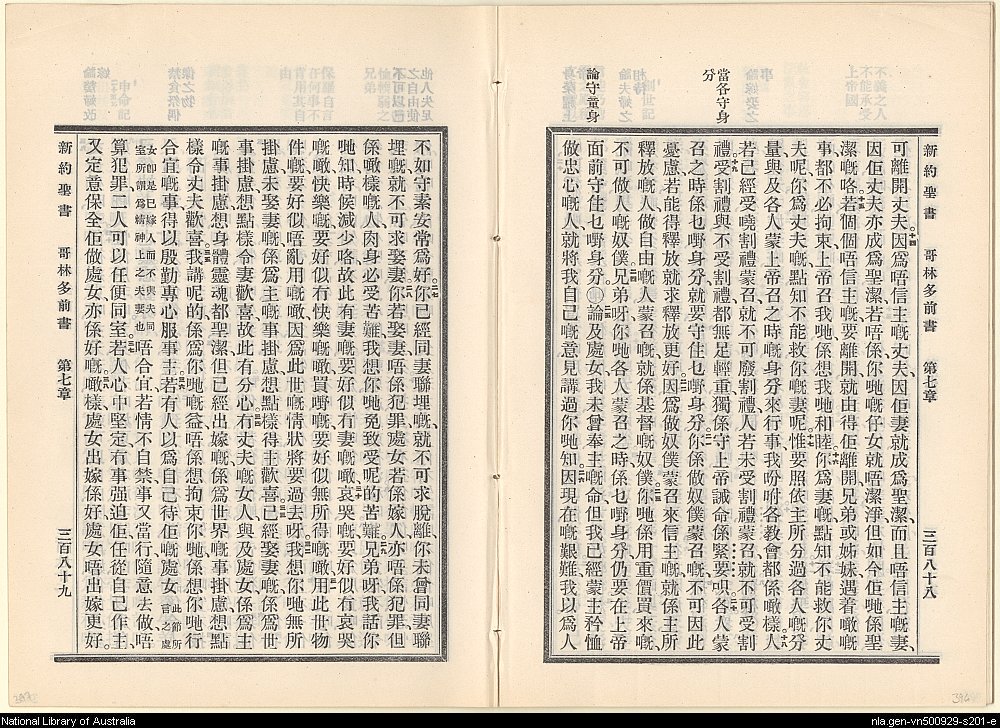 當各守身
分
論守童身
新約聖書　哥林多前書　第七章　三百八十八
可離開丈夫因爲唔信主嘅丈夫因佢妻就成爲聖潔而且唔信主嘅妻
因佢丈夫亦成爲聖潔若唔係你哋嘅仔女就唔潔淨但如今佢哋係聖
潔嘅咯若個個唔信主嘅要離開就由得佢離開兄弟或姊妹遇着噉嘅
事都不必拘束上帝召我哋係想我哋和睦你爲妻嘅點知不能救你丈
夫呢你爲丈夫嘅點知不能救你嘅妻呢惟要照依主所分過各人嘅分
量與及各人蒙上帝召之時嘅身分來行事我吩咐各教會都係噉樣人
若已經受曉割禮蒙召就不可廢割禮人若未受割禮蒙召就不可受割
禮受割禮與不受割禮都無足輕重獨係守上帝誡命係緊要呮各人蒙
召之時係乜嘢身分就要守住乜嘢身分你係做奴僕蒙召嘅不可因此
憂慮若能得釋放就求釋放更好因爲做奴僕蒙召來信主嘅就係主所
釋放嘅人做自由嘅人蒙召嘅就係基督嘅奴僕你哋係用重價買來嘅
不可做人嘅奴僕兄弟呀你哋各人蒙召之時係乜嘢身分仍要在上帝
面前守住乜嘢身分〇論及處女我未曾奉主嘅命但我已經蒙主矜恤
做忠心嘅人就將我自己嘅意見講過你哋知因現在嘅艱難我以爲人
不如守素安常爲好你已經同妻聯埋嘅就不可求脫離你未曾同妻聯
埋嘅就不可求娶妻你若娶妻唔係犯罪處女若係嫁人亦唔係犯罪但
係噉樣嘅人肉身必受苦難我想你哋免致受呢的苦難兄弟呀我話你
哋知時候減少咯故此有妻嘅要好似有妻嘅噉哀哭嘅要好似有哀哭
嘅噉快樂嘅要好似冇快樂嘅噉買嘢嘅要好似無所得嘅噉用此世物
件嘅要好似唔亂用嘅噉因爲此世嘅情狀將要過去呀我想你哋無所
掛慮未娶妻嘅係爲主嘅事掛慮想點樣得主歡喜已經娶妻嘅係爲世
事掛慮想點樣令妻歡喜故此有分心有丈夫嘅女人與及處女係爲主
嘅事掛慮想身體靈魂都聖潔但已經出嫁嘅係爲世界嘅事掛慮想點
樣令丈夫歡喜我講呢的係爲你哋嘅益唔係想拘束你哋係想你哋行
合宜嘅事得以殷勤專心服事主若有人以爲自己待佢嘅處女此節所言之處
女卽是已嫁人而不與夫同室所謂爲精神上之夫妻也唔合宜若情不自禁事又當行隨意去做唔
算犯罪二人可以任便同室若人心中堅定冇事强迫佢任從自己作主
又定意保全佢做處女亦係好嘅噉樣處女出嫁係好處女唔出嫁更好
新約聖書　哥林多前書　第七章　三百八十九
National Library of Australia
nla.gen-vn500929-s201-e